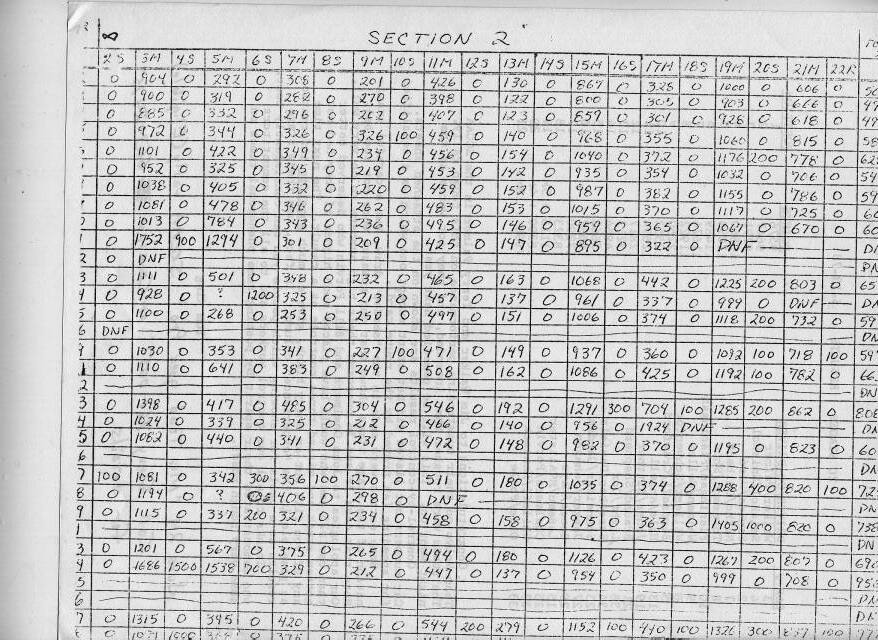 SECTION 2
2S 3M 4S 5M 6S 7M 8S 9M 10S 11M 12S 13M 14S 15M 16S 17M 18S 19M 20S 21M 22R
0 904 0 292 0 308 0 201 0 426 0 130 0 867 0 328 0 1000 0 606 0
0 900 0 319 0 282 0 270 0 398 0 122 0 800 0 305 0 903 0 666 0
0 885 0 332 0 296 0 202 0 407 0 123 0 859 0 301 0 928 0 618 0
0 972 0 344 0 326 0 326 100 459 0 140 0 968 0 355 0 1060 0 815 0
0 1101 0 422 0 349 0 234 0 456 0 154 0 1040 0 372 0 1176 200 778 0
0 952 0 325 0 345 0 219 0 453 0 142 0 935 0 354 0 1032 0 706 0
0 1038 0 405 0 332 0 220 0 459 0 152 0 987 0 382 0 1155 0 786 0
0 1081 0 478 0 346 0 262 0 483 0 153 0 1015 0 370 0 1117 0 725 0
0 1013 0 784 0 343 0 236 0 495 0 146 0 959 0 365 0 1067 0 670 0
0 1752 900 1294 0 301 0 209 0 425 0 147 0 895 0 322 0 DNF
2 0 DNF
3 0 1111 0 501 0 348 0 232 0 465 0 163 0 1068 0 442 0 1225 200 803 0
4 0 928 0 ? 1200 325 0 213 0 457 0 137 0 961 0 337 0 989 0 DNF
5 0 1100 0 268 0 253 0 250 0 497 0 151 0 1006 0 374 0 1118 200 732 0
6 DNF
9 0 1030 0 353 0 341 0 227 100 471 0 149 0 937 0 360 0 1092 100 718 100
1 0 1110 0 641 0 383 0 249 0 508 0 162 0 1086 0 425 0 1192 100 782 0
2
3 0 1398 0 417 0 485 0 304 0 546 0 192 0 1291 300 704 100 1285 200 862 0
4 0 1024 0 339 0 325 0 212 0 466 0 140 0 956 0 1924 DNF
5 0 1082 0 440 0 341 0 231 0 472 0 148 0 982 0 370 0 1195 0 823 0
6
7 100 1081 0 342 300 356 100 270 0 511 0 180 0 1035 0 374 0 1288 400 820 100
8 0 1194 0 ? 406 0 298 0 DNF
9 0 1115 0 337 200 321 0 234 0 458 0 158 0 975 0 363 0 1405 1000 820 0
1
3 0 1201 0 567 0 375 0 265 0 494 0 180 0 1126 0 423 0 1267 200 807 0
4 0 1686 1500 1538 700 329 0 212 0 447 0 137 0 954 0 350 0 999 0 708 0
5
6
7 0 1315 0 395 0 420 0 266 0 544 200 279 0 1152 100 440 100 1326 300